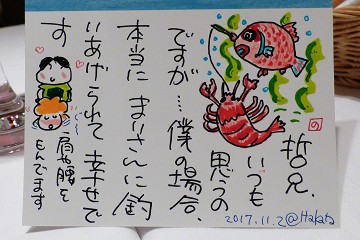 哲兄、
いつも
思うの
ですが…僕の場合、
本当に まりさんに釣
いあげられて 幸せで
す
肩や腰を
もんでます
の
2017.11.2@Hakata